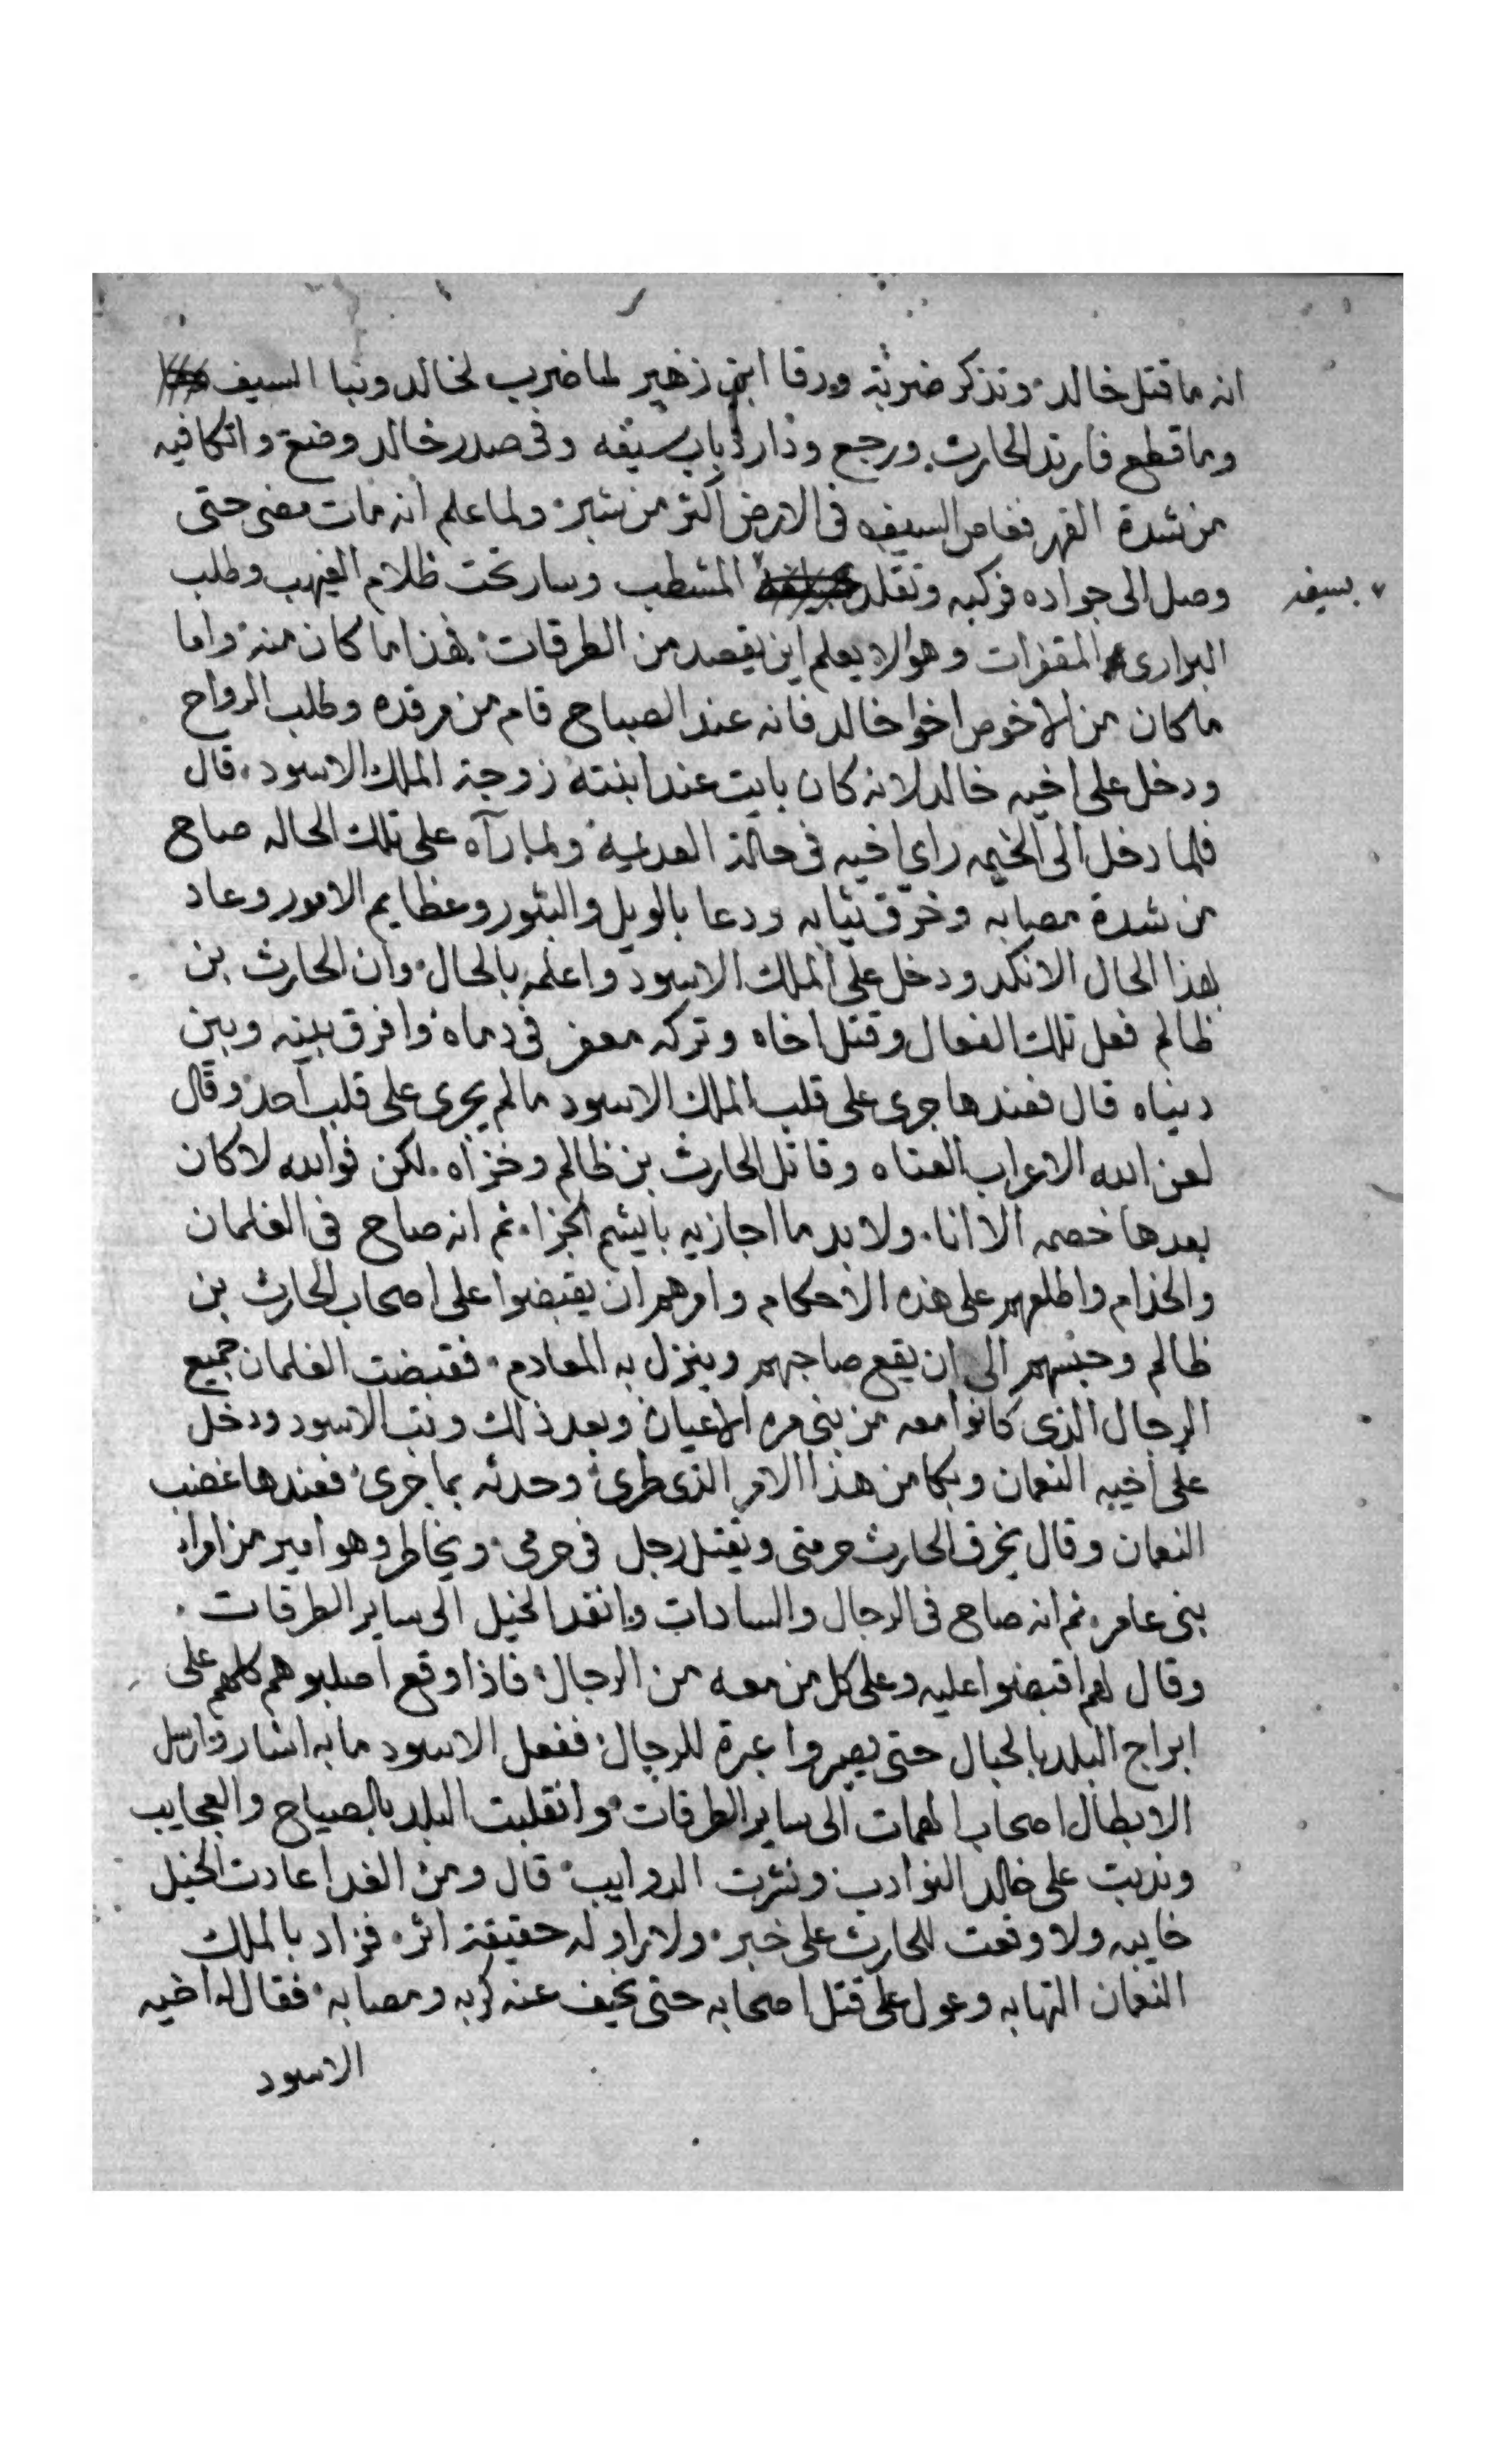 انه ما قتل خالد وتذكر ضربة ورقا ابن زهير لما ضرب لخالد ونبا السيف
وما قطع فارتد الحارث ورجع ودار ذباب سيفه وفى صدر خالد وضعه واتكا فيه
من شدة القهر فغاص السيف فى الارض اكثر من شبر ولما علم انه مات مضى حتى
وصل الى جواده فركبه وتقلد المشطب وسار تحت ظلام الغيهب وطلب
بسيفه
البرارى المقفرات وهو لا يعلم اين يقصد من الطرقات فهذا ما كان منه واما
ما كان من الاخوص اخوا خالد فانه عند الصباح قام من مرقده وطلب الرواح
ودخل على اخيه خالد لانه كان بايت عند ابنته زوجة الملك الاسود قال
فلما دخل الى الخيمه راى اخيه فى حالة العدميه ولما رآه على تلك الحاله صاح
من شدة مصابه وخرّق ثيابه ودعا بالويل والثبور وعظايم الامور وعاد
بهذا الحال الانكد ودخل على الملك الاسود واعلمه بالحال وان الحارث بن
ظالم فعل تلك الفعال وقتل اخاه وتركه معفر فى دماه وافرق بينه وبين
دنياه قال فعندها جرى على قلب الملك الاسود ما لم يجرى على قلب احد وقال
لعن الله الاعراب العتاه وقاتل الحارث بن ظالم وخزاه لكن فوالله لا كان
بعدها خصمه الا انا ولا بد ما اجازيه بايشم الجزا ثم انه صاح فى الغلمان
والخدام واطلعهم على هذه الاحكام وامرهم ان يقبضوا على اصحاب الحارث بن
ظالم وحبسهم الى ان يقع صاحبهم وينزل به المعادم فقبضت الغلمان جميع
الرجال الذى كانوا معه من بنى مره الاعيان وبعد ذلك وثب الاسود ودخل
على اخيه النعمان وبكا من هذا الامر الذى طرى وحدثه بما جرى فعندها غضب
النعمان وقال يخرق الحارث حرمتى ويقتل رجل فى حرمى ويخاطر وهو امير من امراء
بنى عامر ثم انه صاح فى الرجال والسادات وانفذ الخيل الى ساير الطرقات
وقال لهم اقبضوا عليه وعلى كل من معه من الرجال فاذا وقع اصلبوهم كلهم على
ابراج البلد بالحبال حتى يصيروا عبرة للرجال ففعل الاسود ما به اشار وارسل
الابطال اصحاب الهمات الى ساير الطرقات وانقلبت البلد بالصياح والعجايب
وندبت على خالد النوادب ونثرت الدوايب قال ومن الغد اعادت الخيل
خايبه ولا وقعت للحارث على خبر ولا راو له حقيقة اثر فزاد بالملك
النعمان التهابه وعول على قتل اصحابه حتى يخيف عنه كربه ومصابه فقال له اخيه
الاسود